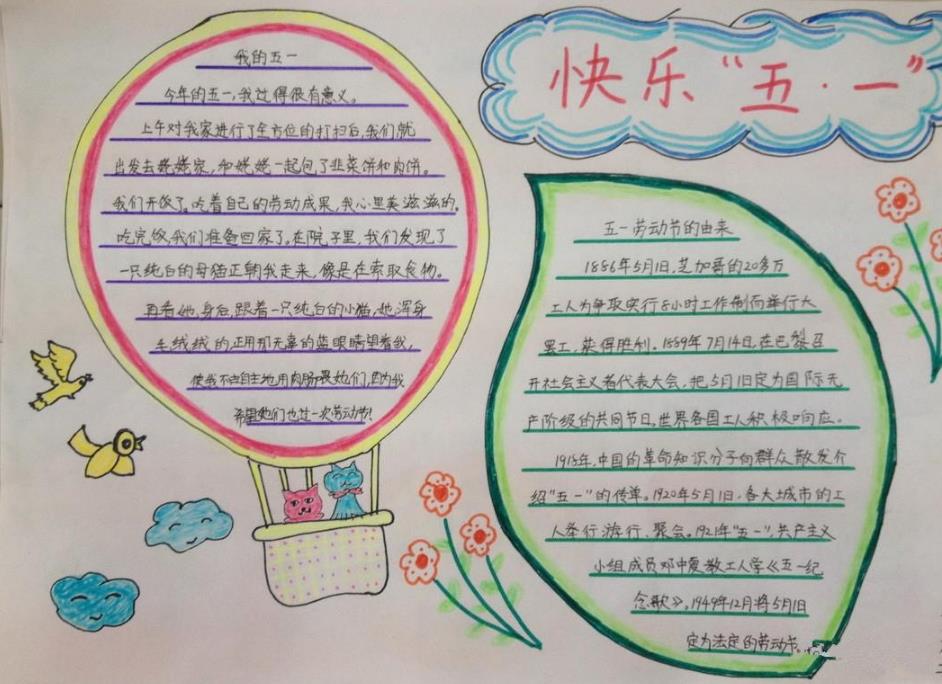 快乐“五·一”
我的五一
今年的五一，我过得很有意义。
上午对我家进行了全方位的打扫后，我们就
出发去姥姥家，和姥姥一起包了韭菜饼和肉饼。
我们开饭了。吃着自己的劳动成果，我心里美滋滋的。
吃完饭，我们准备回家了。在院子里，我们发现了
一只纯白的母猫正朝我走来，像是在索取食物。
再看她，身后跟着一只纯白的小猫，她浑身
毛绒绒的，正用那无辜的蓝眼睛望着我，
使我不由自主地用肉肠喂她们，因为我
希望她们也过一次劳动节！
五一劳动节的由来
1886年5月1日，芝加哥的20多万
工人为争取实行8小时工作制而举行大
罢工，获得胜利。1889年7月14日，在巴黎召
开社会主义者代表大会，把5月1日定为国际无
产阶级的共同节日。世界各国工人积极响应。
1915年，中国的革命知识分子向群众散发介
绍“五一”的传单。1920年5月1日，各大城市的工
人举行游行、聚会。1921年“五一”，共产主义
小组成员邓中夏教工人学《五一纪
念歌》。1949年12月将5月1日
定为法定的劳动节。